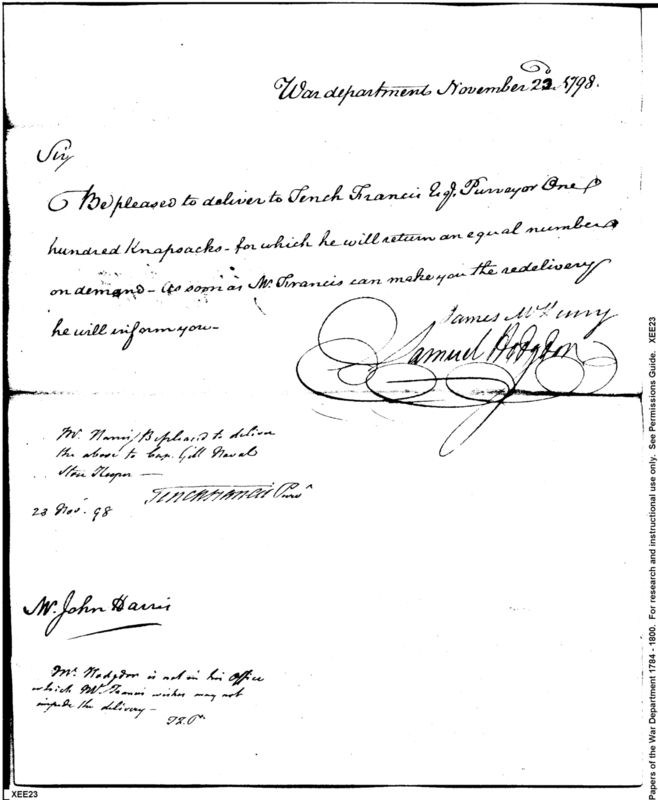 War department November 23d. 1798.
Sir
Be pleased to deliver to Tench Francis Esq. Purveyor One
hundred Knapsacks - for which he will return an equal number
on demand - As soon as Mr. Francis can make you the redelivery
he will inform you -
James McHenry
Samuel Hodgdon
Mr. Harris Be pleased to deliver
the above to Cap. Gill Naval
Store Keeper —
Tench Francis Purvr
23 Nov. 98
Mr. John Harris
Mr. Hodgdon is not in his Office
which Mr. Francis wishes may not
impede the delivery -
XEE23
Papers of the War Department 1784 - 1800. For research and instructional use only. See Permissions Guide. XEE23